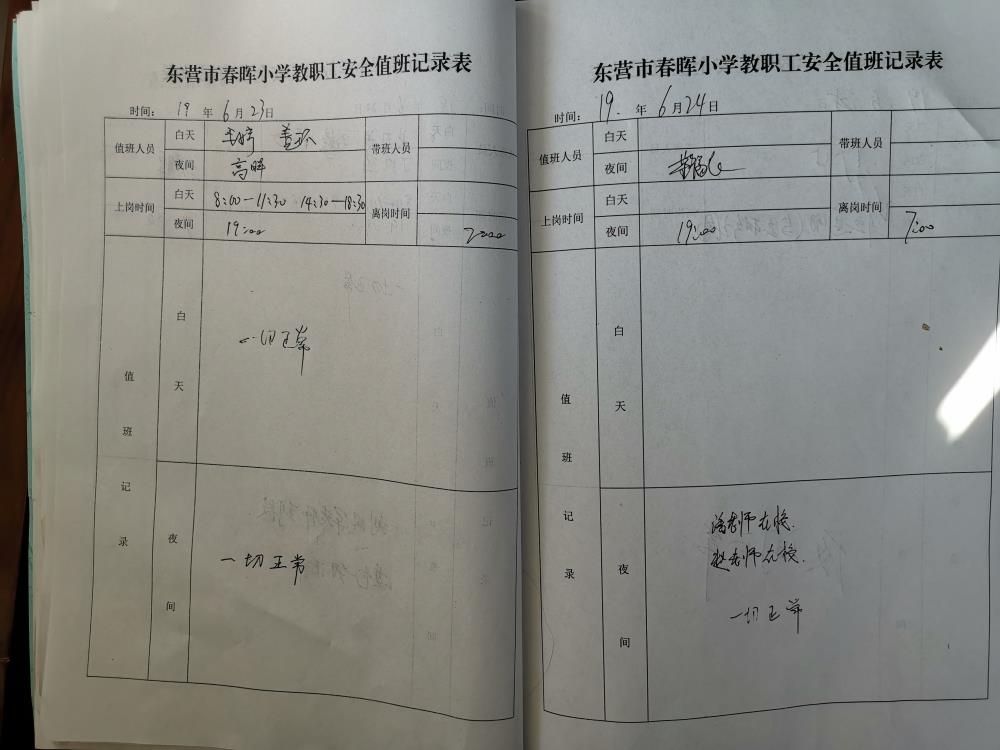 东营市春晖小学教职工安全值班记录表
时间: 19 年 6 月 23 日
值班人员 白天 盖环 带班人员
夜间 高晖
上岗时间 白天 8:00—11:30 14:30—18:30 离岗时间
夜间 19:00
值班记录 白天 一切正常
夜间 一切正常
东营市春晖小学教职工安全值班记录表
时间: 19. 年 6 月 24 日
值班人员 白天 带班人员
夜间
上岗时间 白天 离岗时间
夜间 19:00 7:00
值班记录 白天
夜间 老师在校.
赵老师在校.
一切正常